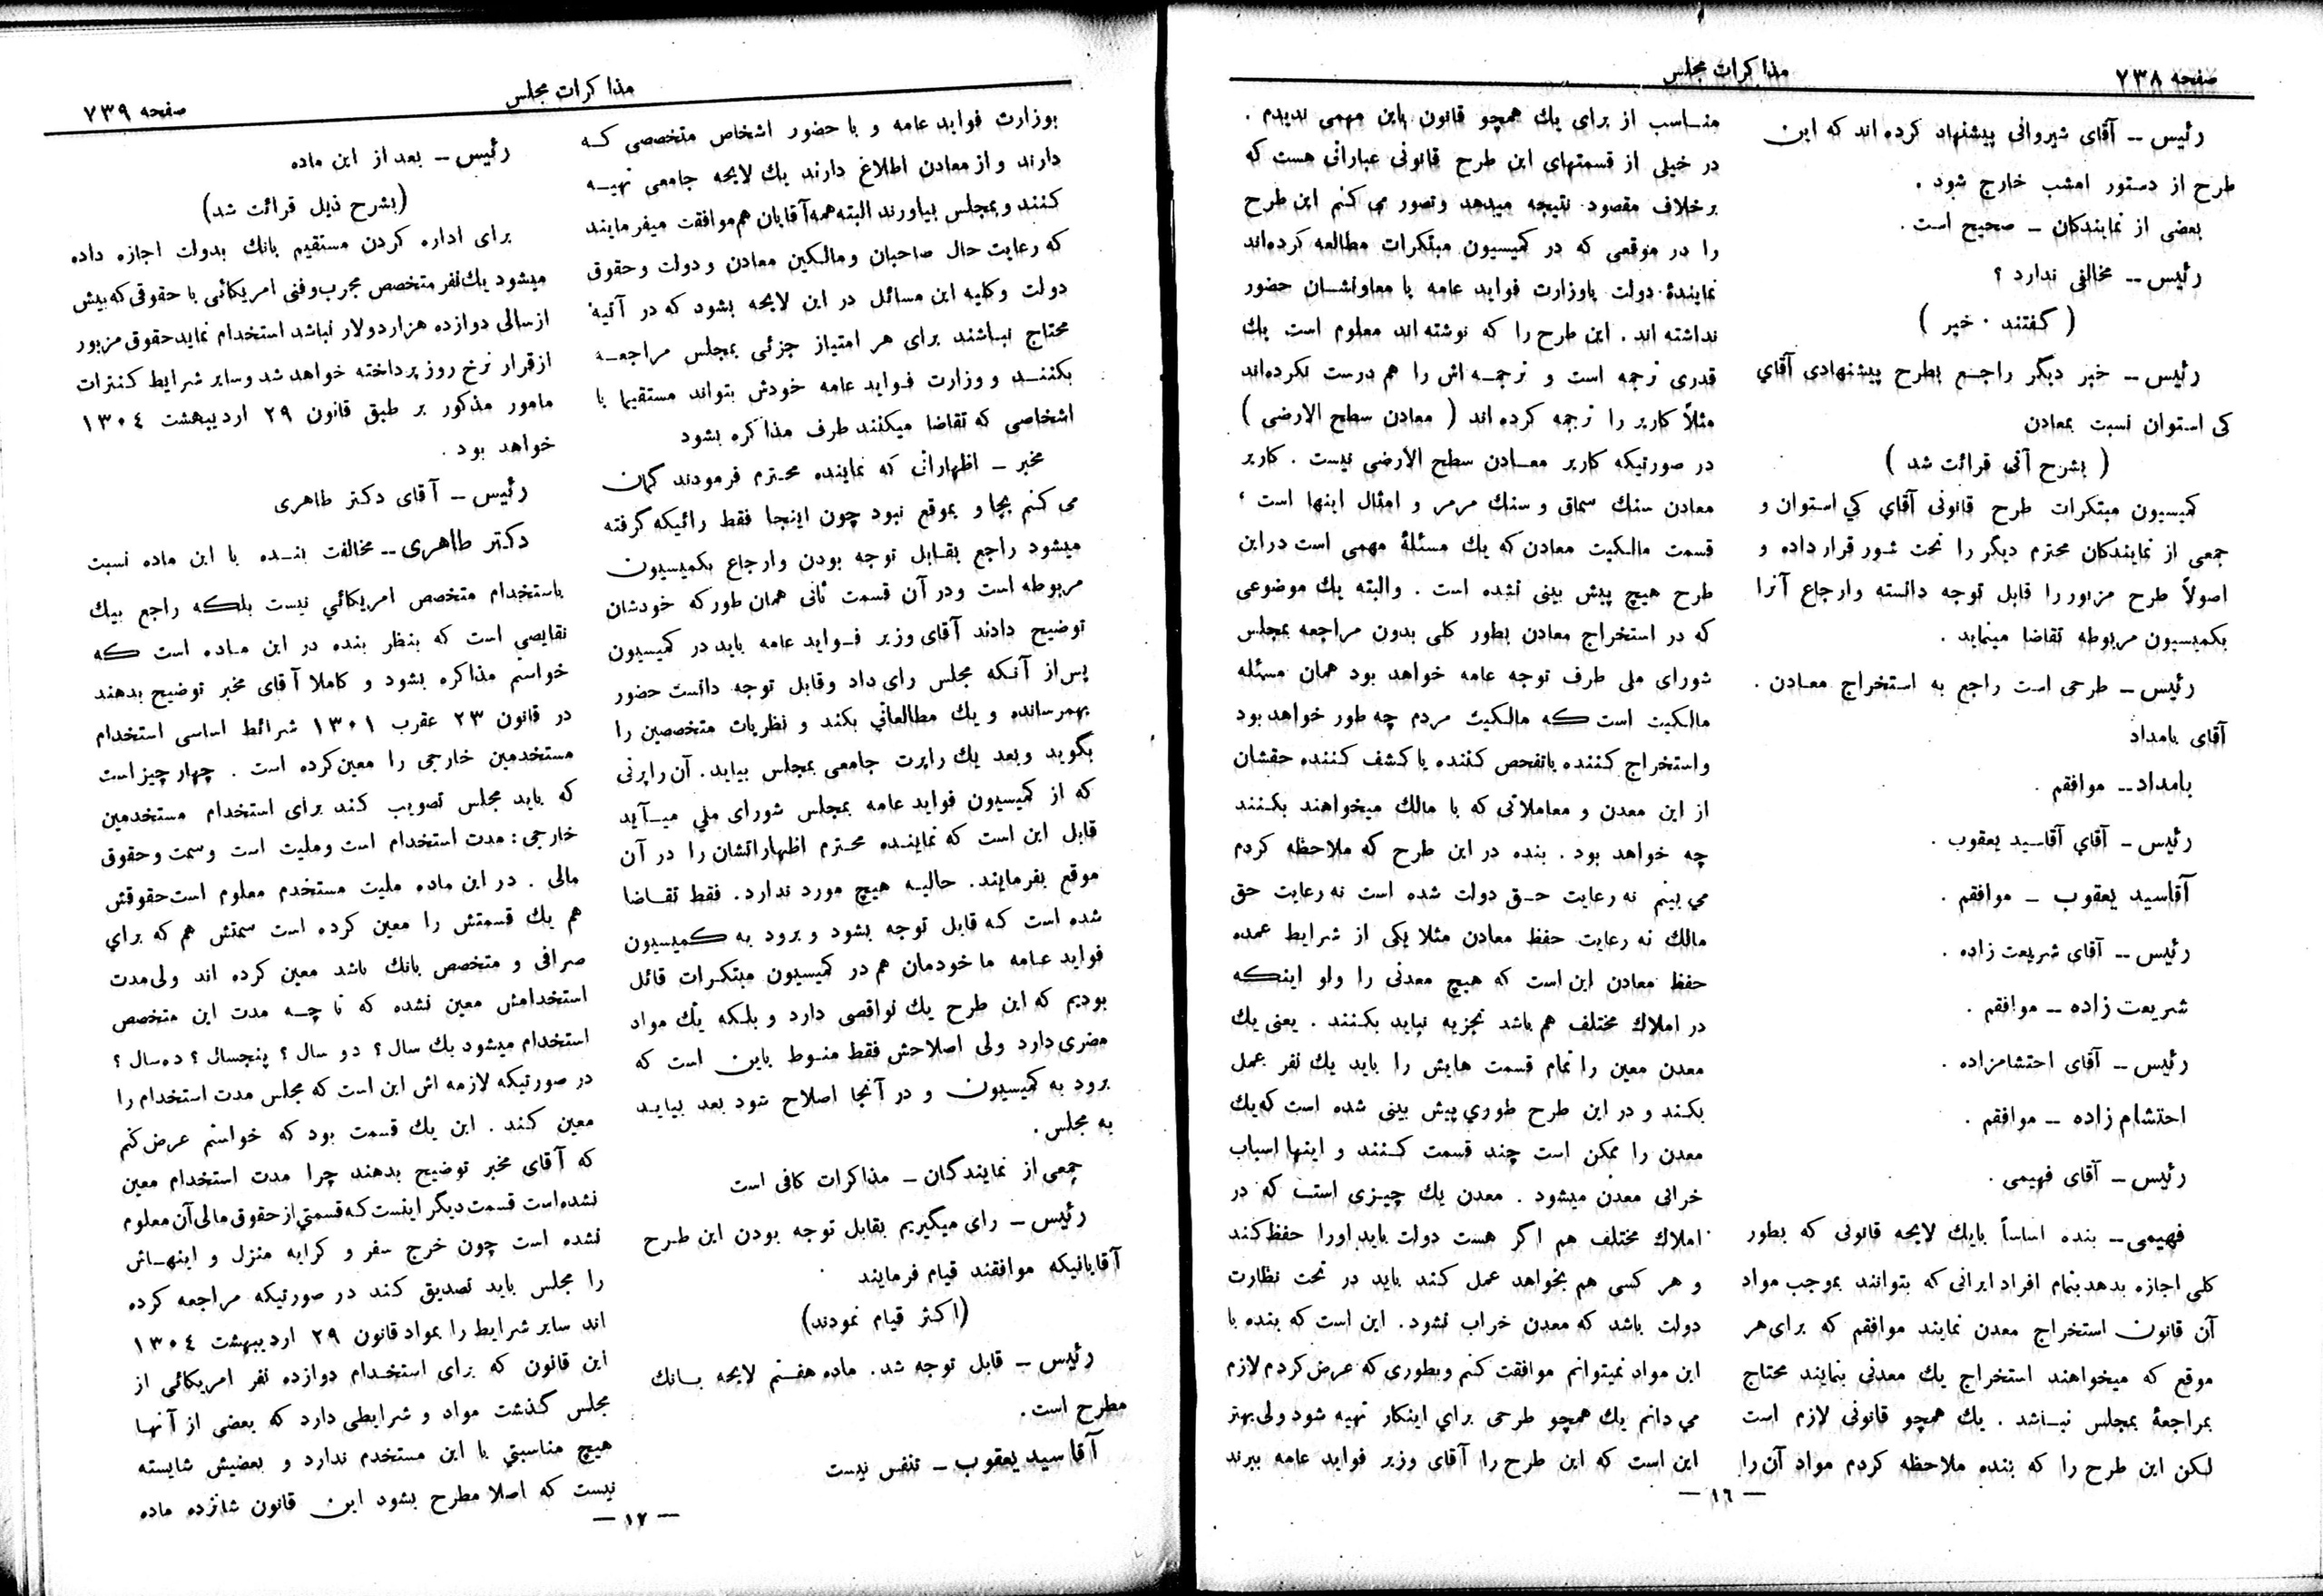 صفحه ۷۳۸
مذاکرات مجلس
رئیس – آقای شیروانی پیشنهاد کرده‌اند که این
طرح از دستور امشب خارج شود .
بعضی از نمایندگان – صحیح است .
رئیس – مخالفی ندارد ؟
( گفتند ۰ خیر )
رئیس – خبر دیگر راجع بطرح پیشنهادی آقای
کی استوان نسبت بمعادن
( بشرح آتی قرائت شد )
کمیسیون مبتکرات طرح قانونی آقای کی استوان و
جمعی از نمایندکان محترم دیگر را تحت شور قرار داده و
اصولاً طرح مزبور را قابل توجه دانسته وارجاع آنرا
بکمیسیون مربوطه تقاضا مینماید .
رئیس – طرحی است راجع به استخراج معادن .
آقای بامداد
بامداد – موافقم .
رئیس – آقای آقاسید یعقوب .
آقاسید یعقوب – موافقم .
رئیس – آقای شریعت زاده .
شریعت زاده – موافقم .
رئیس – آقای احتشامزاده .
احتشام زاده – موافقم .
رئیس – آقای فهیمی .
فهیمی – بنده اساساً بایك لایحه قانونی که بطور
کلی اجازه بدهد بتمام افراد ایرانی که بتوانند بموجب مواد
آن قانون استخراج معدن نمایند موافقم که برای هر
موقع که میخواهند استخراج یك معدنی بنمایند محتاج
بمراجعهٔ بمجلس نباشد . یك همچو قانونی لازم است
لکن این طرح را که بنده ملاحظه کردم مواد آن را
مناسب از برای یك همچو قانون باین مهمی ندیدم .
در خیلی از قسمتهای این طرح قانونی عباراتی هست که
برخلاف مقصود نتیجه میدهد وتصور می کنم این طرح
را در موقعی که در کمیسیون مبتکرات مطالعه کرده‌اند
نمایندهٔ دولت یاوزارت فواید عامه یا معاونشان حضور
نداشته اند . این طرح را که نوشته اند معلوم است یك
قدری ترجمه است و ترجمه اش را هم درست نکرده‌اند
مثلاً کاریر را ترجمه کرده اند ( معادن سطح الارضی )
در صورتیکه کاریر معادن سطح الارضی نیست . کاریر
معادن سنك سماق و سنك مرمر و امثال اینها است ،
قسمت مالکیت معادن که یك مسئلهٔ مهمی است در این
طرح هیچ پیش بینی نشده است . والبته یك موضوعی
که در استخراج معادن بطور کلی بدون مراجعه بمجلس
شورای ملی طرف توجه عامه خواهد بود همان مسئله
مالکیت است که مالکیت مردم چه طور خواهد بود
واستخراج کننده یاتفحص کننده یا کشف کننده حقشان
از این معدن و معاملاتی که با مالك میخواهند بکنند
چه خواهد بود . بنده در این طرح که ملاحظه کردم
می بینم نه رعایت حق دولت شده است نه رعایت حق
مالك نه رعایت حفظ معادن مثلا یکی از شرایط عمده
حفظ معادن این است که هیچ معدنی را ولو اینکه
در املاك مختلف هم باشد تجزیه نباید بکنند . یعنی یك
معدن معین را تمام قسمت هایش را باید یك نفر عمل
بکند و در این طرح طوری پیش بینی شده است که یك
معدن را ممکن است چند قسمت کنند و اینها اسباب
خرابی معدن میشود . معدن یك چیزی است که در
املاك مختلف هم اگر هست دولت باید اورا حفظ کند
و هر کسی هم بخواهد عمل کند باید در تحت نظارت
دولت باشد که معدن خراب نشود . این است که بنده با
این مواد نمیتوانم موافقت کنم وبطوری که عرض کردم لازم
می دانم یك همچو طرحی برای اینکار تهیه شود ولی بهتر
این است که این طرح را آقای وزیر فواید عامه ببرند
– ١٦ –
مذاکرات مجلس
صفحه ۷۳۹
بوزارت فواید عامه و با حضور اشخاص متخصصی که
دارند و از معادن اطلاع دارند یك لایحه جامعی تهیه
کنند و بمجلس بیاورند البته همه آقایان هم موافقت میفرمایند
که رعایت حال صاحبان ومالکین معادن و دولت و حقوق
دولت وکلیه این مسائل در این لایحه بشود که در آتیه
محتاج نباشند برای هر امتیاز جزئی بمجلس مراجعه
بکنند و وزارت فواید عامه خودش بتواند مستقیما با
اشخاصی که تقاضا میکنند طرف مذاکره بشود
مخبر – اظهاراتی که نماینده محترم فرمودند گمان
می کنم بجا و بموقع نبود چون اینجا فقط رائیکه گرفته
میشود راجع بقابل توجه بودن وارجاع بکمیسیون
مربوطه است ودر آن قسمت ثانی همان طور که خودشان
توضیح دادند آقای وزیر فواید عامه باید در کمیسیون
پس از آنکه مجلس رای داد وقابل توجه دانست حضور
بهمرسانده و یك مطالعاتی بکند و نظریات متخصصین را
بگوید وبعد یك راپرت جامعی بمجلس بیاید . آن راپرتی
که از کمیسیون فواید عامه بمجلس شورای ملی میآید
قابل این است که نماینده محترم اظهاراتشان را در آن
موقع بفرمایند . حالیه هیچ مورد ندارد . فقط تقاضا
شده است که قابل توجه بشود و برود به کمیسیون
فواید عامه ما خودمان هم در کمیسیون مبتکرات قائل
بودیم که این طرح یك نواقصی دارد و بلکه یك مواد
مضری دارد ولی اصلاحش فقط منوط باین است که
برود به کمیسیون و در آنجا اصلاح شود بعد بیاید
به مجلس .
جمعی از نمایندگان – مذاکرات کافی است
رئیس – رای میگیریم بقابل توجه بودن این طرح
آقایانیکه موافقند قیام فرمایند
(اکثر قیام نمودند)
رئیس – قابل توجه شد . ماده هفتم لایحه بانك
مطرح است .
آقا سید یعقوب – تنفس نیست
رئیس – بعد از این ماده
(بشرح ذیل قرائت شد)
برای اداره کردن مستقیم بانك بدولت اجازه داده
میشود یك نفر متخصص مجرب وفنی امریکائی با حقوقی که بیش
از سالی دوازده هزار دولار نباشد استخدام نماید حقوق مزبور
از قرار نرخ روز پرداخته خواهد شد وسایر شرایط کنترات
مامور مذکور بر طبق قانون ۲۹ اردیبهشت ۱۳۰٤
خواهد بود .
رئیس – آقای دکتر طاهری
دکتر طاهری – مخالفت بنده با این ماده نسبت
باستخدام متخصص امریکائی نیست بلکه راجع بیك
نقایصی است که بنظر بنده در این ماده است که
خواستم مذاکره بشود و کاملا آقای مخبر توضیح بدهند
در قانون ۲۳ عقرب ۱۳۰۱ شرائط اساسی استخدام
مستخدمین خارجی را معین کرده است . چهار چیز است
که باید مجلس تصویب کند برای استخدام مستخدمین
خارجی : مدت استخدام است وملیت است وسمت وحقوق
مالی . در این ماده ملیت مستخدم معلوم است حقوقش
هم یك قسمتش را معین کرده است سمتش هم که برای
صرافی و متخصص بانك باشد معین کرده اند ولی مدت
استخدامش معین نشده که تا چه مدت این متخصص
استخدام میشود یك سال ؟ دو سال ؟ پنجسال ؟ ده سال ؟
در صورتیکه لازمه اش این است که مجلس مدت استخدام را
معین کند . این یك قسمت بود که خواستم عرض کنم
که آقای مخبر توضیح بدهند چرا مدت استخدام معین
نشده است قسمت دیگر اینست که قسمتی از حقوق مالی آن معلوم
نشده است چون خرج سفر و کرایه منزل و اینهاش
را مجلس باید تصدیق کند در صورتیکه مراجعه کرده
اند سایر شرایط را بمواد قانون ۲۹ اردیبهشت ۱۳۰٤
این قانون که برای استخدام دوازده نفر امریکائی از
مجلس گذشت مواد و شرایطی دارد که بعضی از آنها
هیچ مناسبتی با این مستخدم ندارد و بعضیش شایسته
نیست که اصلا مطرح بشود این قانون شانزده ماده
– ۱۷ –